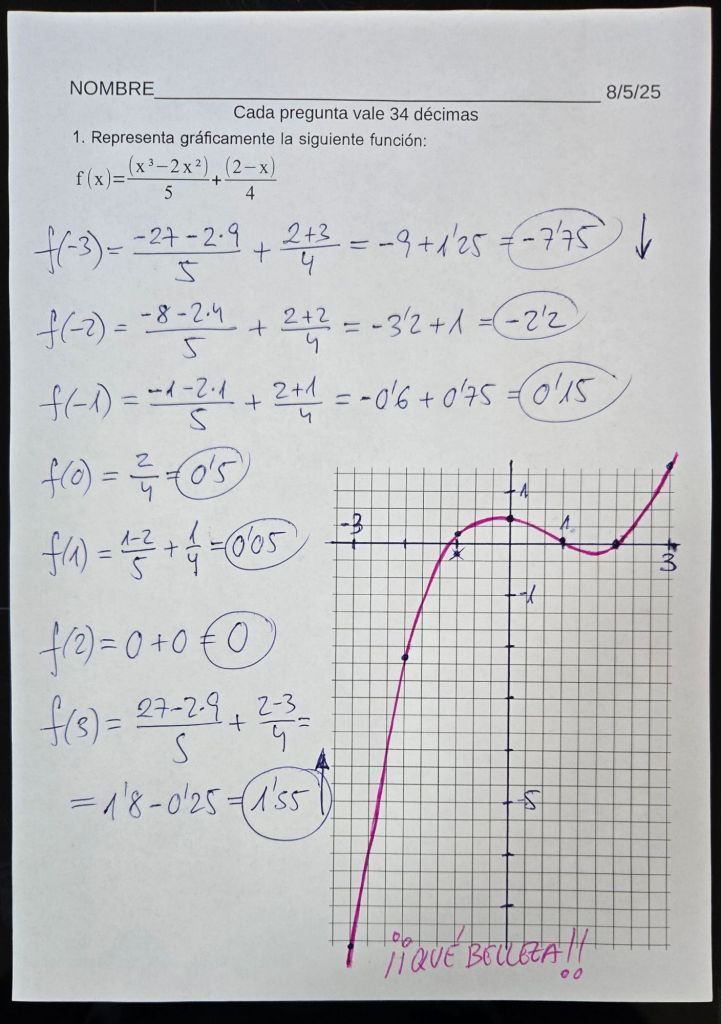 NOMBRE 8/5/25
Cada pregunta vale 34 décimas
1. Representa gráficamente la siguiente función:
f(x)=(x³−2x²)/5+(2−x)/4
f(-3) = (-27-2·9)/5 + (2+3)/4 = -9+1'25 = -7'75 ↓
f(-2) = (-8-2·4)/5 + (2+2)/4 = -3'2+1 = -2'2
f(-1) = (-1-2·1)/5 + (2+1)/4 = -0'6+0'75 = 0'15
f(0) = 2/4 = 0'5
f(1) = (1-2)/5 + 1/4 = 0'05
f(2) = 0+0 = 0
f(3) = (27-2·9)/5 + (2-3)/4 =
= 1'8-0'25 = 1'55 ↑
1
-3
1
3
-1
-5
¡¡QUÉ BELLEZA!!